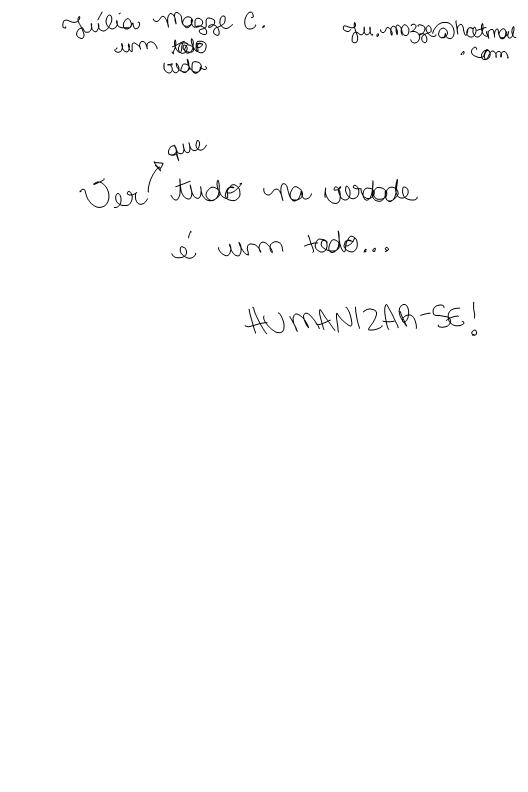 Júlia Mazze C.
ju.mazze@hotmail
.com
um todo
vida
que
Ver tudo na verdade
é um todo...
HUMANIZAR-SE!